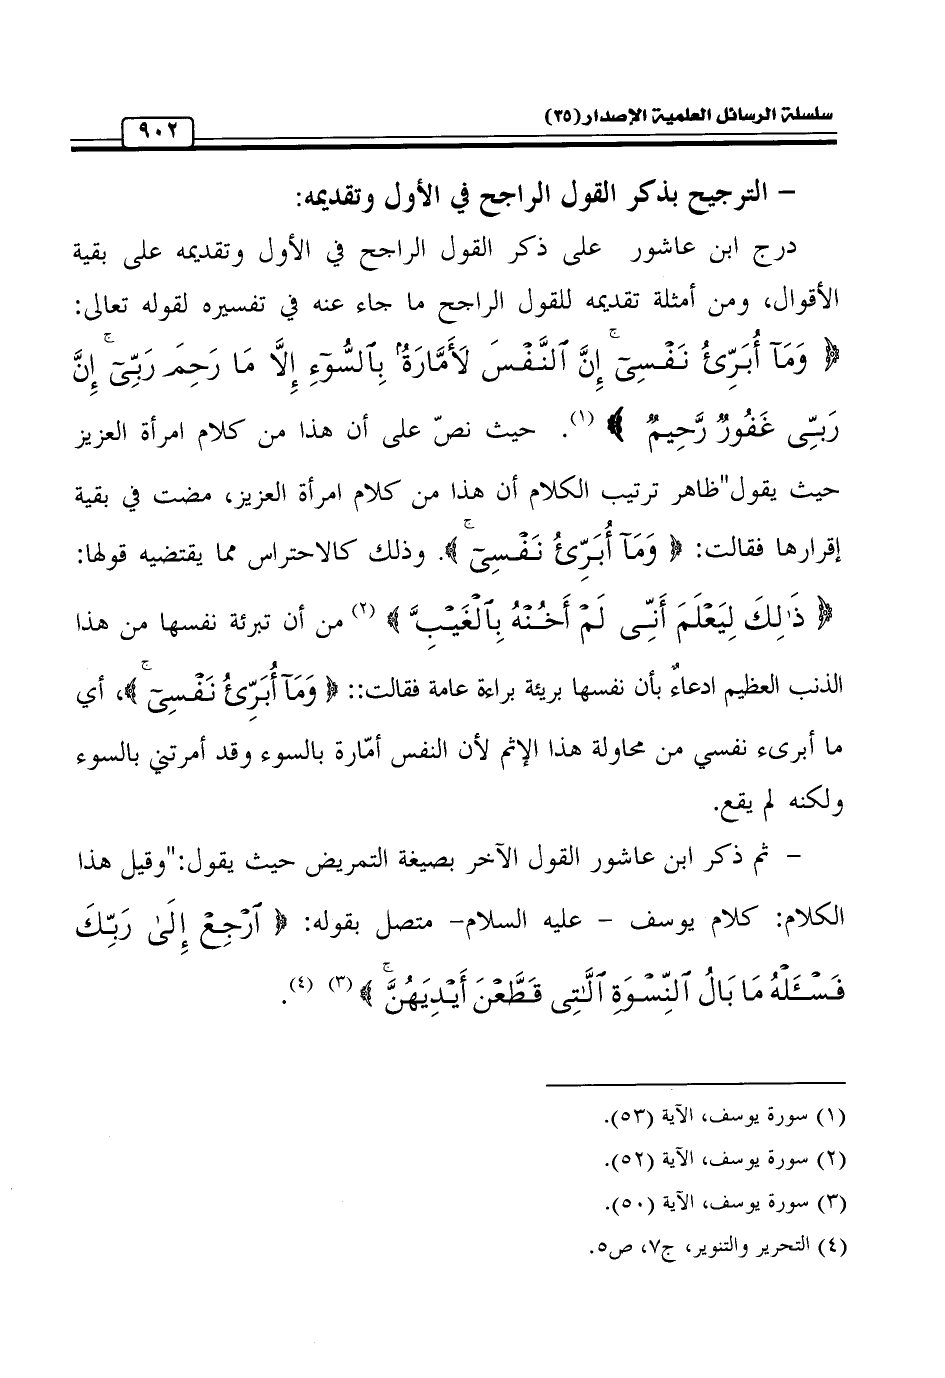 سلسلة الرسائل العلمية الإصدار(٣٥)
٩٠٢
– الترجيح بذكر القول الراجح في الأول وتقديمه:
درج ابن عاشور على ذكر القول الراجح في الأول وتقديمه على بقية
الأقوال، ومن أمثلة تقديمه للقول الراجح ما جاء عنه في تفسيره لقوله تعالى:
﴿ وَمَآ أُبَرِّئُ نَفْسِىٓ ۚ إِنَّ ٱلنَّفْسَ لَأَمَّارَةٌۢ بِٱلسُّوٓءِ إِلَّا مَا رَحِمَ رَبِّىٓ ۚ إِنَّ
رَبِّى غَفُورٌ رَّحِيمٌ ﴾ (١). حيث نصّ على أن هذا من كلام امرأة العزيز
حيث يقول"ظاهر ترتيب الكلام أن هذا من كلام امرأة العزيز، مضت في بقية
إقرارها فقالت: ﴿ وَمَآ أُبَرِّئُ نَفْسِىٓ ۚ ﴾. وذلك كالاحتراس مما يقتضيه قولها:
﴿ ذَٰلِكَ لِيَعْلَمَ أَنِّى لَمْ أَخُنْهُ بِٱلْغَيْبِ ﴾ (٢) من أن تبرئة نفسها من هذا
الذنب العظيم ادعاءٌ بأن نفسها بريئة براءة عامة فقالت:: ﴿ وَمَآ أُبَرِّئُ نَفْسِىٓ ۚ ﴾، أي
ما أبرىء نفسي من محاولة هذا الإثم لأن النفس أمّارة بالسوء وقد أمرتني بالسوء
ولكنه لم يقع.
– ثم ذكر ابن عاشور القول الآخر بصيغة التمريض حيث يقول:"وقيل هذا
الكلام: كلام يوسف – عليه السلام– متصل بقوله: ﴿ ٱرْجِعْ إِلَىٰ رَبِّكَ
فَسْـَٔلْهُ مَا بَالُ ٱلنِّسْوَةِ ٱلَّٰتِى قَطَّعْنَ أَيْدِيَهُنَّ ۚ ﴾ (٣) (٤).
(١) سورة يوسف، الآية (٥٣).
(٢) سورة يوسف، الآية (٥٢).
(٣) سورة يوسف، الآية (٥٠).
(٤) التحرير والتنوير، ج٧، ص٥.